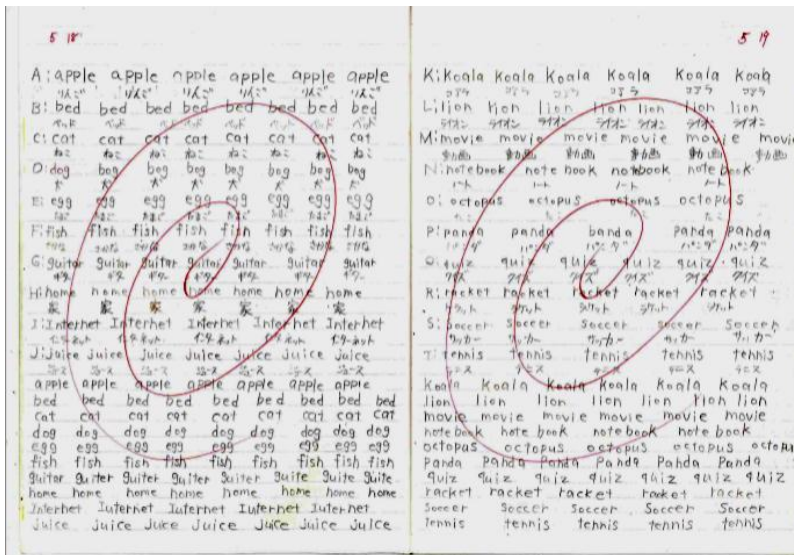 5 18
A: apple apple apple apple apple apple
りんご りんご りんご りんご りんご
B: bed bed bed bed bed bed bed
ベッド ベッド ベッド ベッド ベッド ベッド
C: cat cat cat cat cat cat cat
ねこ ねこ ねこ ねこ ねこ ねこ
D: dog bog bog bog bog bog
犬 犬 犬 犬 犬
E: egg egg egg egg egg egg egg
たまご たまご たまご たまご たまご たまご
F: fish fish fish fish fish fish fish
さかな さかな さかな さかな さかな さかな
G: guitar guitar guitar guitar guitar guitar guitar
ギター ギター ギター ギター ギター
H: home home home home home home home
家 家 家 家 家 家 家
I: Internet Internet Internet Internet Internet
インターネット インターネット インターネット インターネット
J: Juice Juice Juice Juice Juice Juice
ジュース ジュース ジュース ジュース ジュース
apple apple apple apple apple apple apple
bed bed bed bed bed bed bed bed
cat cat cat cat cat cat cat
dog dog dog dog dog dog dog dog
egg egg egg egg egg egg egg egg
fish fish fish fish fish fish fish fish
guitar guiter guiter guiter guiter guite guite guite
home home home home home home home home
Internet Iuternet Iuternet Iuternet Iuternet
Juice Juice Juice Juice Juice Juice Juice
5 19
K: Koala Koala Koala Koala Koala Koala
コアラ コアラ コアラ コアラ コアラ
L: lion lion lion lion lion lion lion
ライオン ライオン ライオン ライオン ライオン ライオン
M: movie movie movie movie movie movie
動画 動画 動画 動画 動画
N: notebook note book notebook note book
ノート ノート ノート
O: octopus octopus octopus octopus
たこ たこ たこ
P: panda panda banda panda panda
パンダ パンダ パンダ パンダ
Q: quiz quiz quiz quiz quiz quiz
クイズ クイズ クイズ クイズ クイズ
R: racket racket racket racket racket
ラケット ラケット ラケット ラケット ラケット
S: Soccer Soccer Soccer Soccer Soccer
サッカー サッカー サッカー サッカー サッカー
T: tennis tennis tennis tennis tennis
テニス テニス テニス テニス
Koala Koala Koala Koala Koala Koala
lion lion lion lion lion lion lion
movie movie movie movie movie movie
note book note book notebook note book
octopus octopus octopus octopus octopus
Panda Panda Panda Panda Panda Panda
quiz quiz quiz quiz quiz quiz quiz
racket racket racket racket racket
Soccer Soccer Soccer Soccer Soccer
tennis tennis tennis tennis tennis